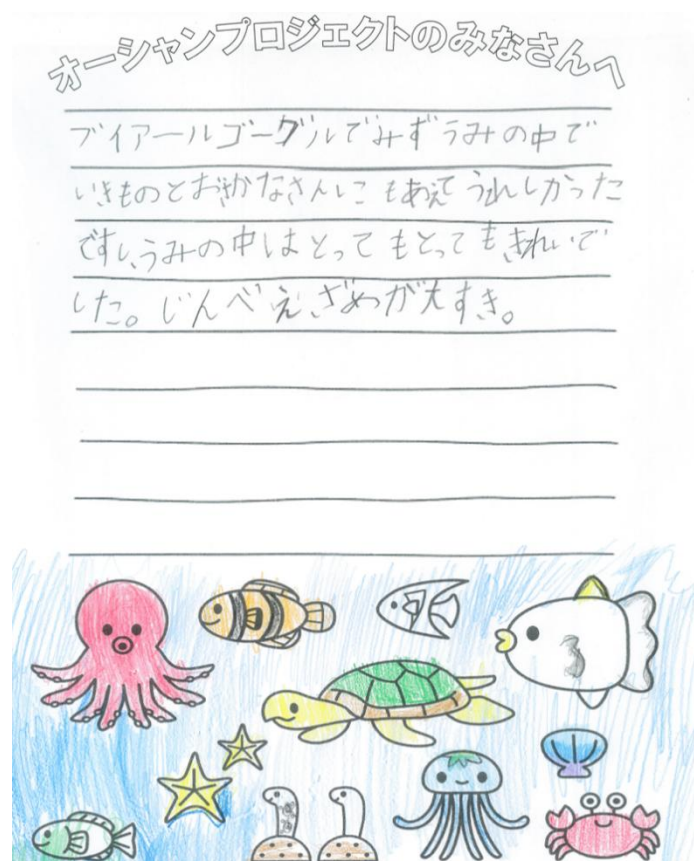 オーシャンプロジェクトのみなさんへ
ブイアールゴーグルでみずうみの中で
いきものとおさかなさんにもあえてうれしかった
ですし、うみの中はとってもとってもきれいで
した。じんべえざめが大すき。